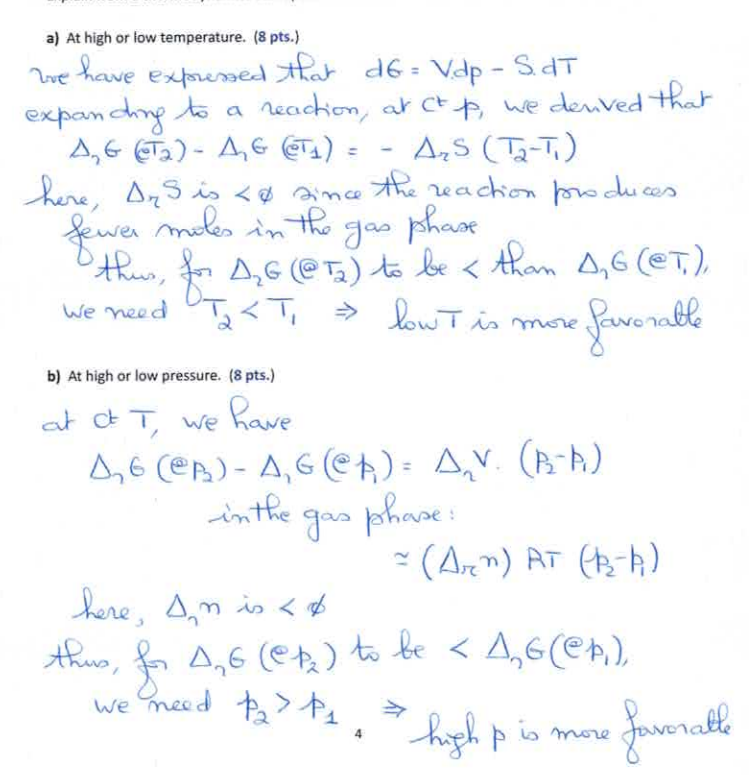 a) At high or low temperature. (8 pts.)
we have expressed that dG = V.dp - S.dT
expanding to a reaction, at ct p, we derived that
ΔrG (@T2) - ΔrG (@T1) = - ΔrS (T2-T1)
here, ΔrS is < ø since the reaction produces
fewer moles in the gas phase
thus, for ΔrG (@T2) to be < than ΔrG (@T1),
we need T2 < T1 ⇒ low T is more favorable
b) At high or low pressure. (8 pts.)
at ct T, we have
ΔrG (@p2) - ΔrG (@p1) = ΔrV. (p2-p1)
in the gas phase:
≃ (Δrn) RT (p2-p1)
here, Δrn is < ø
thus, for ΔrG (@p2) to be < ΔrG (@p1),
we need p2 > p1 ⇒ high p is more favorable
4